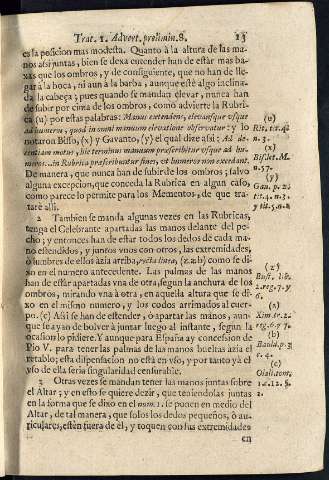 Trat. 1. Advert. prelimin. 8. 15
es la posicion mas modesta. Quanto à la altura de las ma-
nos assi juntas, bien se dexa entender han de estàr mas ba-
xas que los ombros, y de consiguiente, que no han de lle-
gar à la boca, ni aun à la barba, aunque estè algo inclina-
da la cabeça; pues quando se mandan elevar, nunca han
de subir por cima de los ombros, como advierte la Rubri-
ca (u) por estas palabras: Manus extendens, elevansque usque
ad humeros, quod in omni manuum elevatione observatur: y lo
notaron Bisso, (x) y Gavanto, (y) el qual dize assi:
manuum præscribitur usque ad hu-
meros in Rubrica præscribuntur fines, et humeros non excedant.
De manera, que nunca han de subir de los ombros; salvo
alguna excepcion, que conceda la Rubrica en algun caso,
como parece lo permite para los Mementos, de que tra-
tarè alli.
2 Tambien se manda algunas vezes en las Rubricas,
tenga el Celebrante apartadas las manos delante del pe-
cho; y entonces han de estàr todos los dedos de cada ma-
no estendidos, y juntos unos con otros, las extremidades,
ò lumbres de ellos azia arriba, recta linea, (z. a b) como se di-
xo en el numero antecedente. Las palmas de las manos
han de estàr apartadas una de otra, segun la anchura de los
ombros, mirando una à otra, en aquella altura que se di-
xo en el mismo numero, y los codos arrimados al cuer-
po. (c) Assi se han de estender, ò apartar las manos, aun-
que se ayan de bolver à juntar luego al instante, segun la
ocasion lo pidiere. Y aunque para España ay concession de
Pio V. para tener las palmas de las manos bueltas azia el
retablo; esta dispensacion no està en uso, y por tanto yà el
uso de ella seria singularidad censurable.
3 Otras vezes se mandan tener las manos juntas sobre
el Altar; y en esto se quiere dezir, que teniendolas juntas
en la forma que se dixo en el num. 1. se ponen en medio del
Altar, de tal manera, que solos los dedos pequeños, ò au-
riculares, estèn fuera de èl, y toquen con sus extremidades
en
(u)
Rit. tit. 4.
n. 3.
(x)
Bis. let. M.
n. 57.
(y)
Gau. p. 2.
tit. 4. n. 3.
y tit. 5. n. 2
(z)
Bust. lib.
2. reg. 7. y
6.
(a)
Xim. tr. 2.
reg. 6. y 7.
(b)
Bauld. p. 3
c. 4.
(c)
Olall. tom.
1. n. 12. §.
2.